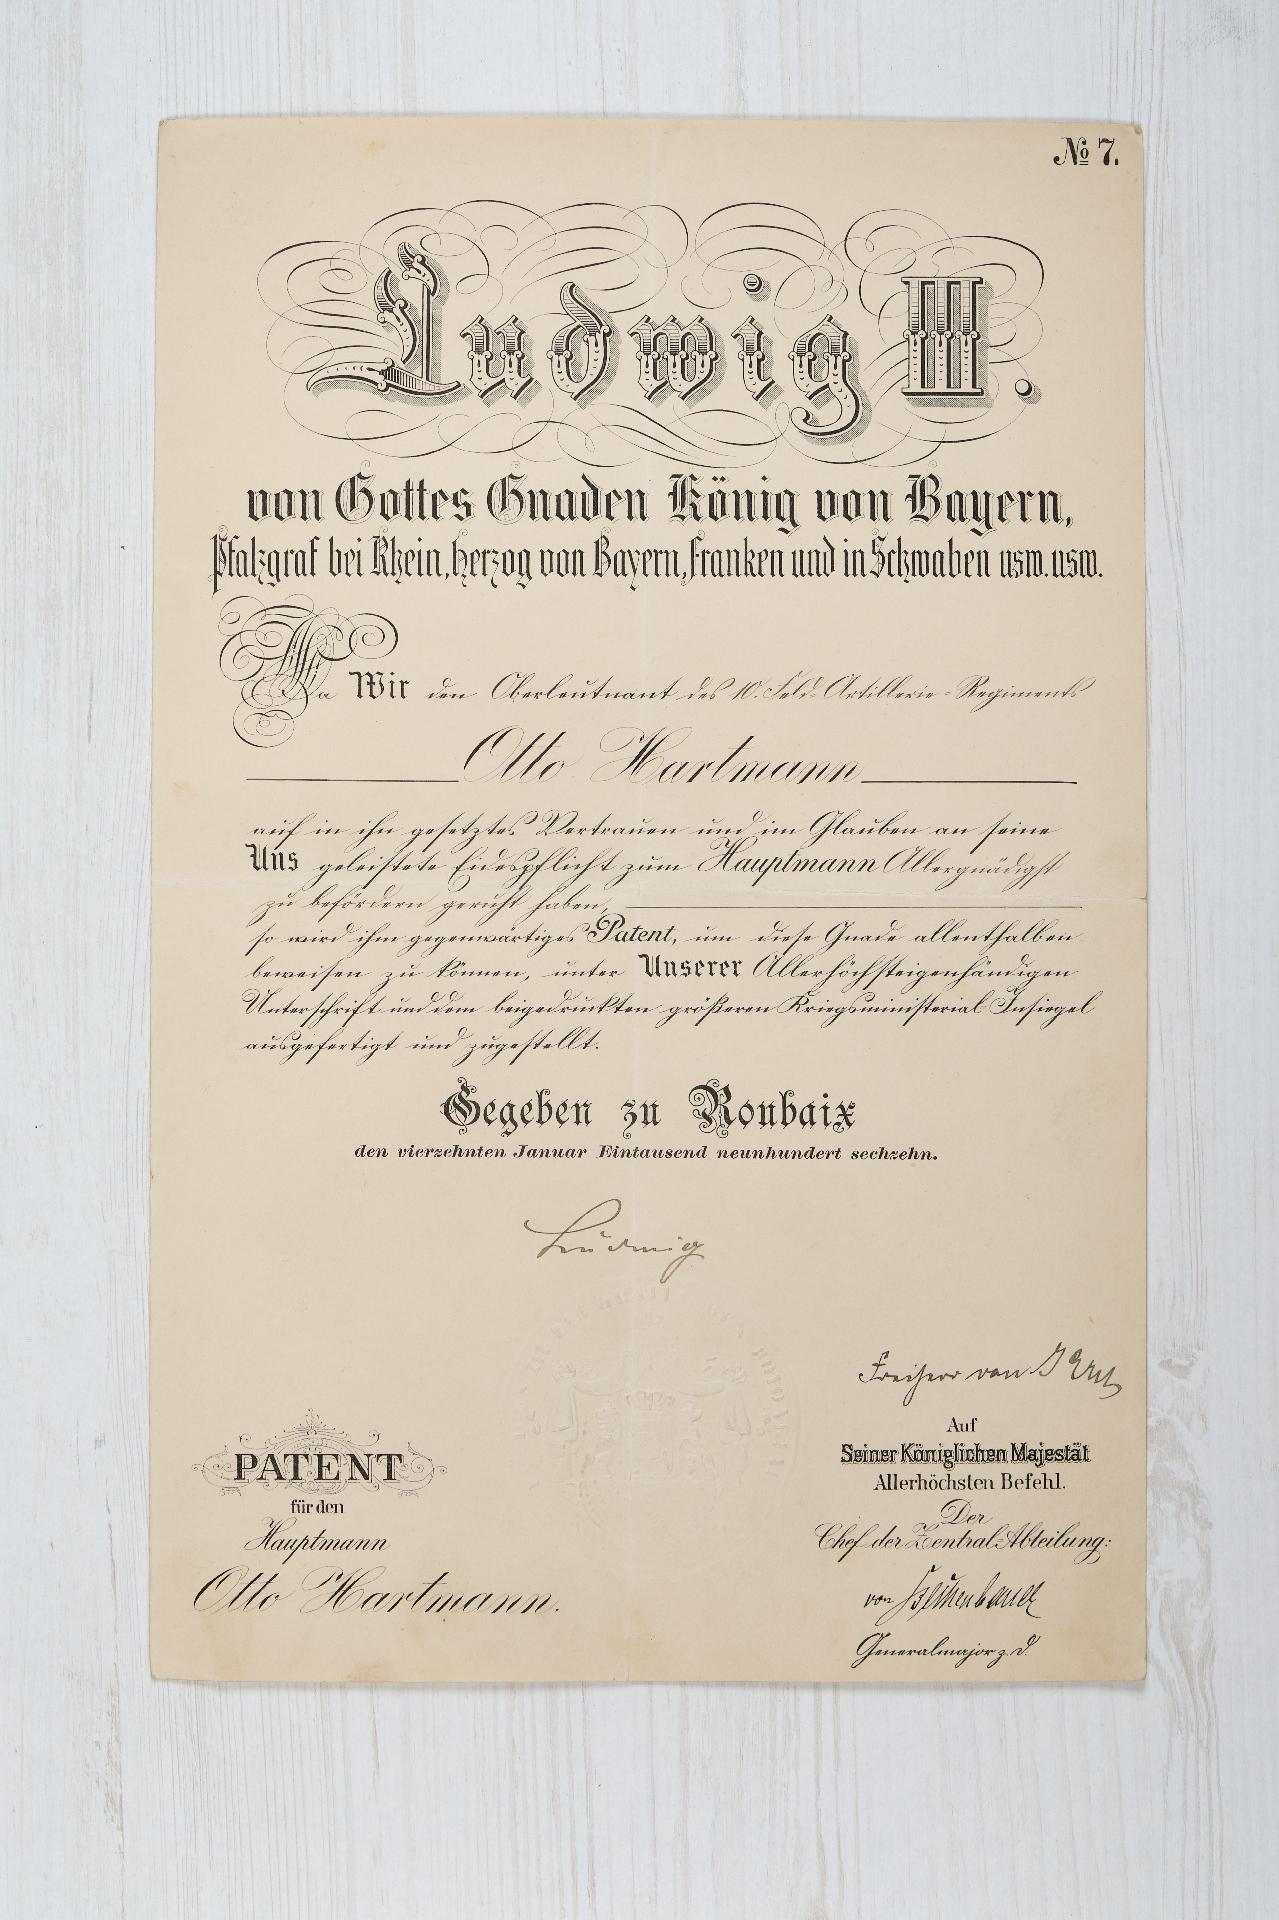 № 7.
Ludwig III.
von Gottes Gnaden König von Bayern,
Pfalzgraf bei Rhein, Herzog von Bayern, Franken und in Schwaben usw. usw.
Da Wir den Oberleutnant des 10. Feld-Artillerie-Regiments
Otto Hartmann
auf in ihn gesetztes Vertrauen und im Glauben an seine
Uns geleistete Eidespflicht zum Hauptmann Allergnädigst
zu befördern geruht haben,
so wird ihm gegenwärtiges Patent, um diese Gnade allenthalben
beweisen zu können, unter Unserer Allerhöchsteigenhändigen
Unterschrift und dem beigedruckten größeren Kriegsministerial-Insiegel
ausgefertigt und zugestellt.
Gegeben zu Roubaix
den vierzehnten Januar Eintausend neunhundert sechzehn.
Ludwig
Freiherr von
Auf
Seiner Königlichen Majestät
Allerhöchsten Befehl.
PATENT
für den
Hauptmann
Otto Hartmann.
Der
Chef der Zentral-Abteilung:
von
Generalmajor z. D.